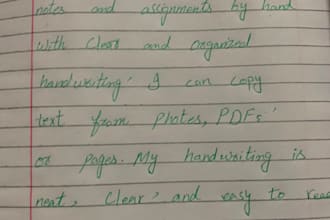 notes and assignments by hand
with clear and organized
handwriting. I can copy
text from photos, PDFs
or pages. My handwriting is
neat, clear, and easy to